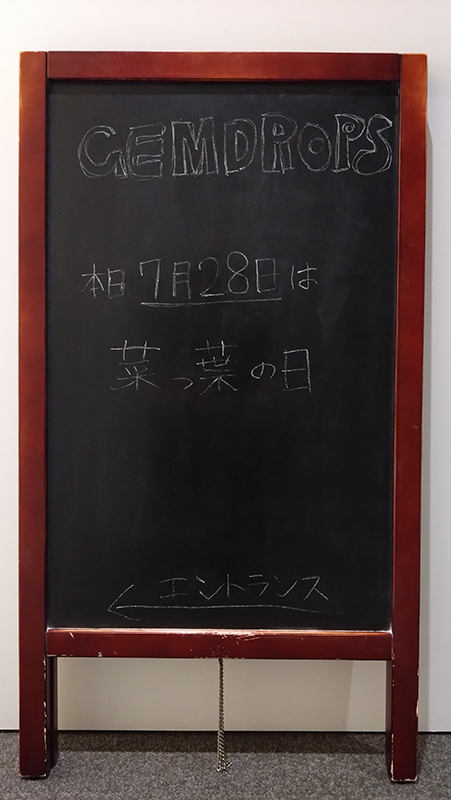 GEMDROPS
本日 7月28日は
菜っ葉の日
エントランス